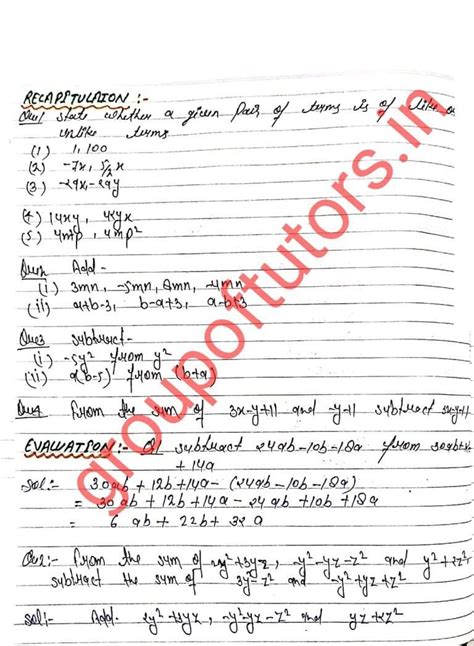 RECAPITULAION :-
Que1 state whether a given pair of terms is of like or
unlike terms
(1) 1, 100
(2) -7x, 5/2 x
(3) -29x, -29y
(4) 14xy, 42yx
(5) 4m²p, 4mp²
Que2 Add -
(i) 3mn, -5mn, 8mn, -4mn
(ii) a+b-3, b-a+3, a-b+3
Que3 subtract-
(i) -5y² from y²
(ii) a(b-5) from (b+a)
Que4 from the sum of 3x-y+11 and -y-11 subtract 3x-y-11
EVALUATION:- Q1 subtract 24ab-10b-18a from 30ab+12b
+14a
sol:- 30ab + 12b + 14a - (24ab - 10b - 18a)
= 30ab + 12b + 14a - 24ab + 10b + 18a
= 6 ab + 22b + 32 a
Que2:- from the sum of 2y²+3yz, -y²-yz-z² and y²+2z²
subtract the sum of 3y²-z² and -y²+yz+z²
sol:- Add. 2y²+3yz, -y²-yz-z² and yz+2z²
groupoftutors.in